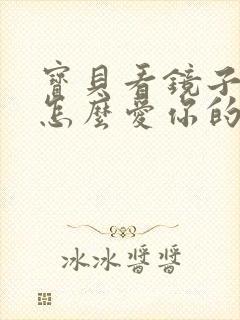 寶貝看鏡子
怎麼愛你的
冰冰醬醬